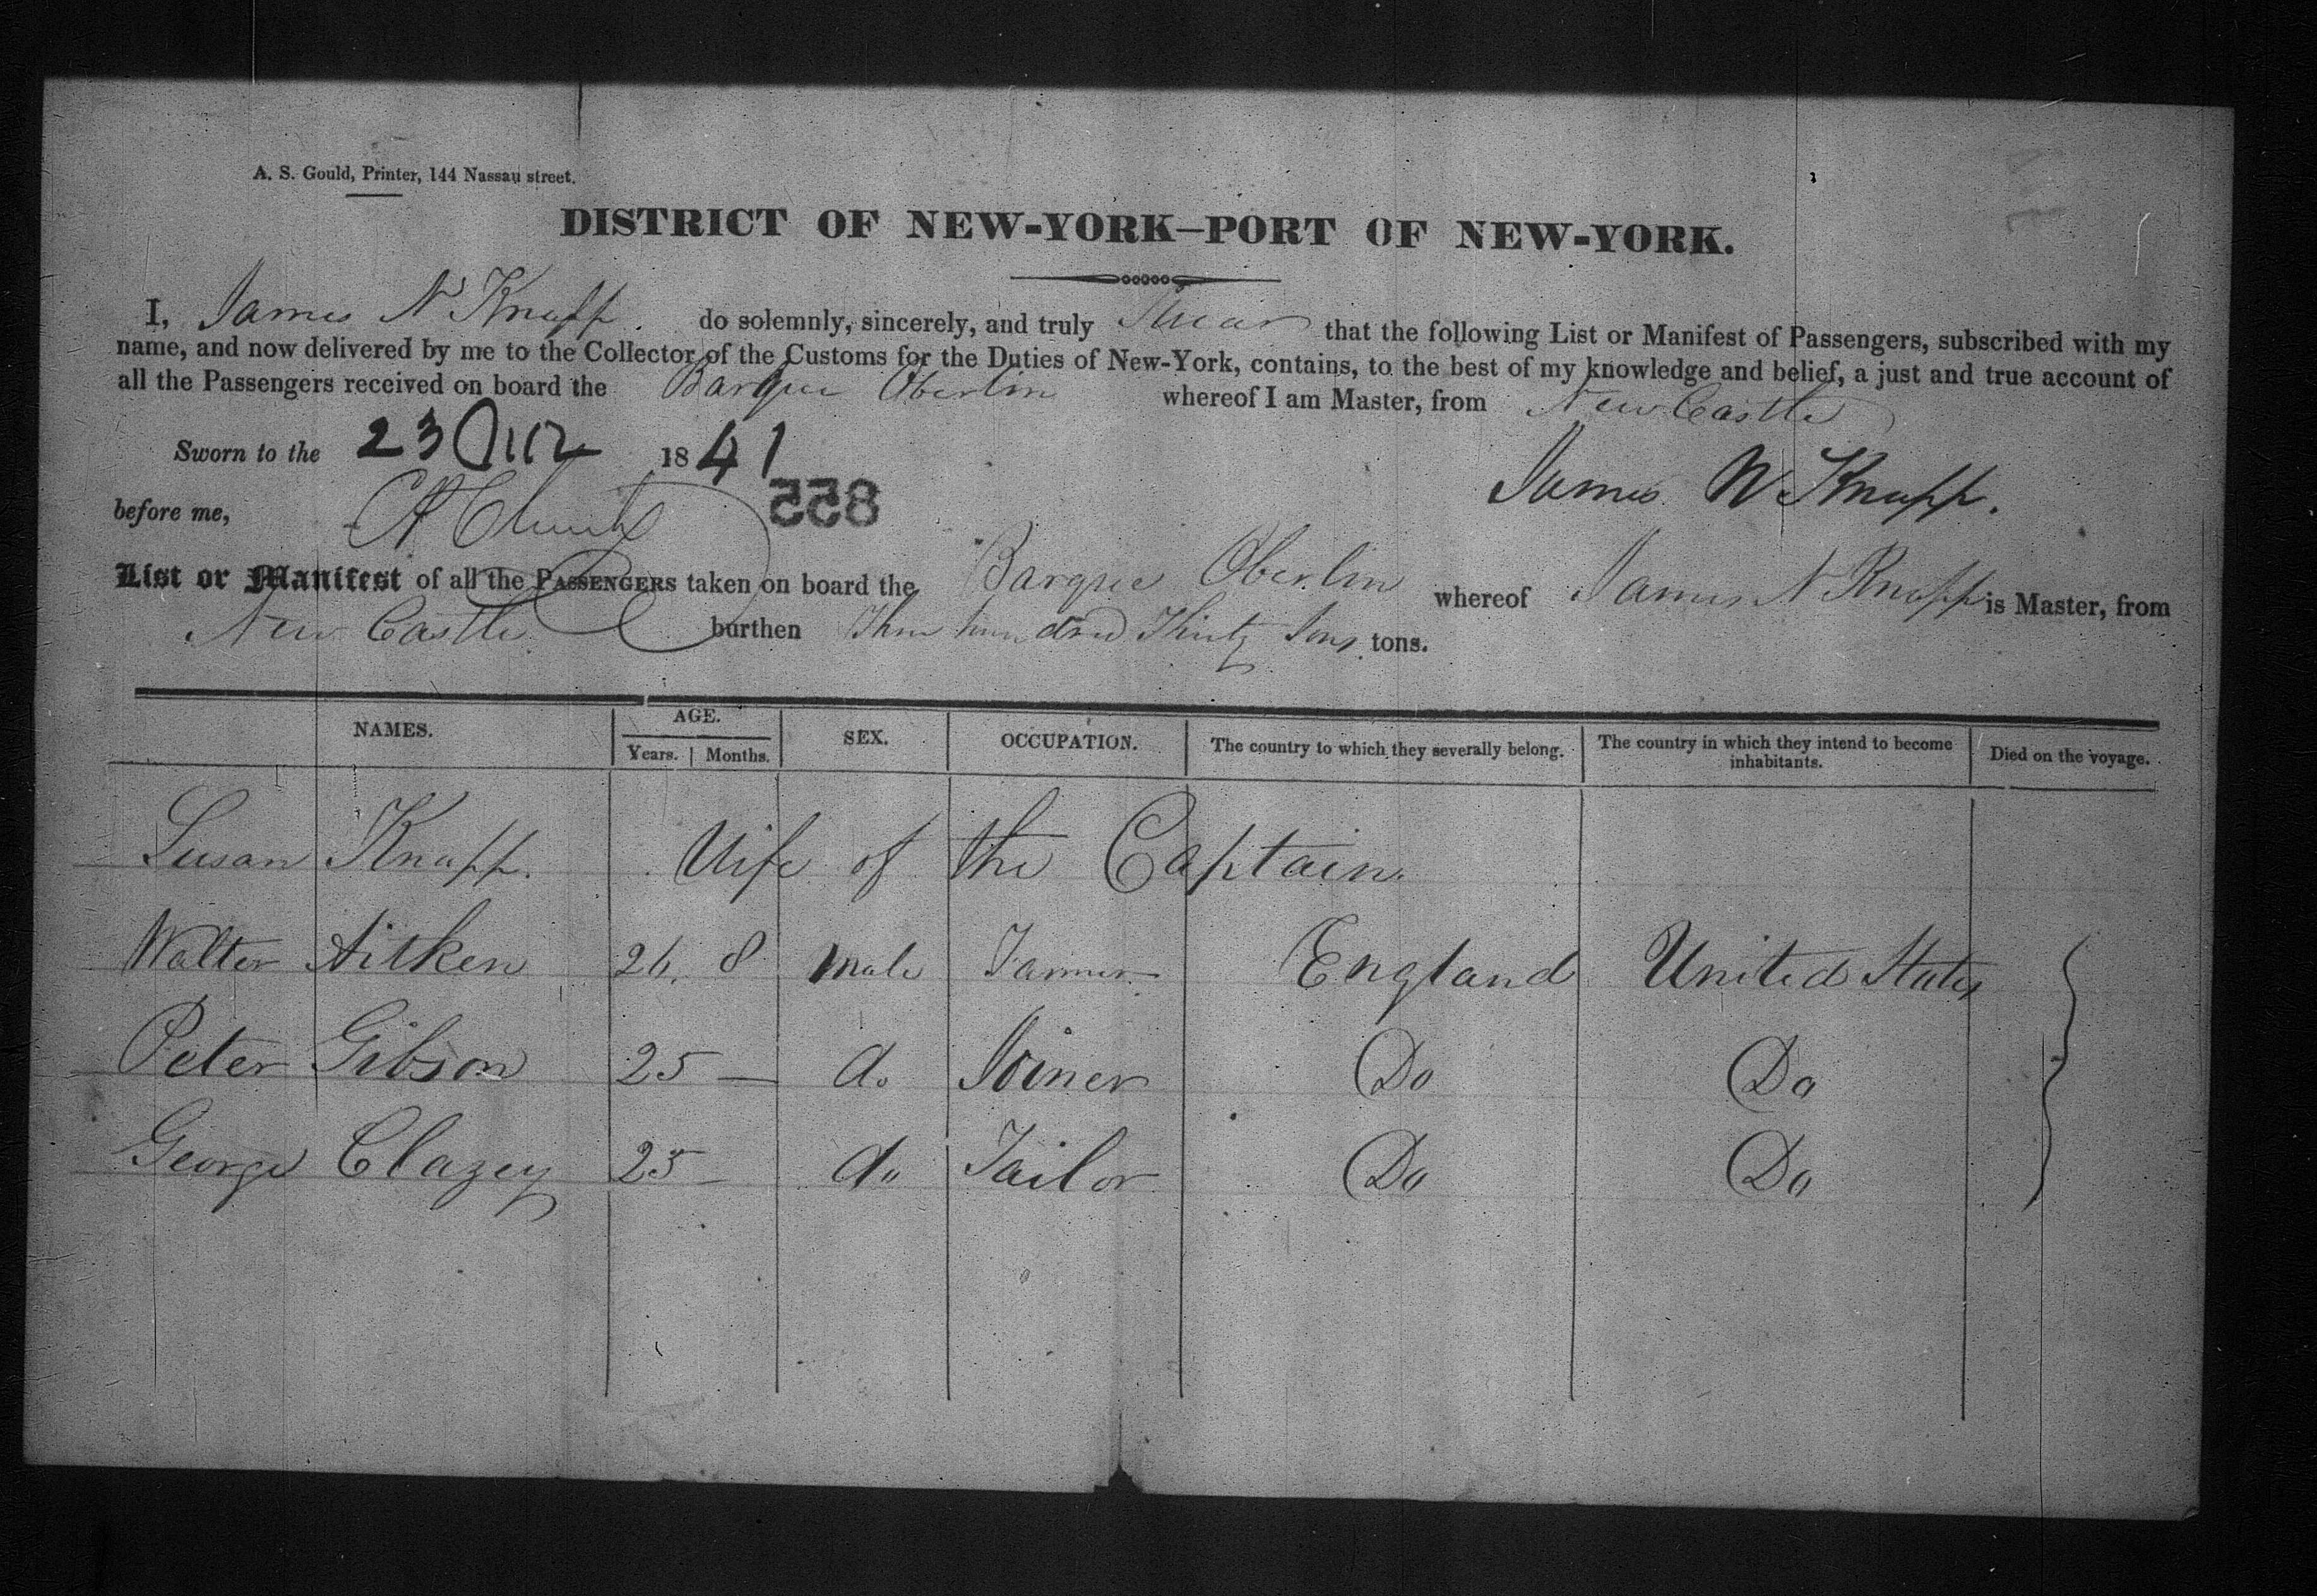 A. S. Gould, Printer, 144 Nassau street.
DISTRICT OF NEW-YORK—PORT OF NEW-YORK.
I, James N Knapp do solemnly, sincerely, and truly Swear that the following List or Manifest of Passengers, subscribed with my
name, and now delivered by me to the Collector of the Customs for the Duties of New-York, contains, to the best of my knowledge and belief, a just and true account of
all the Passengers received on board the Barque Oberlin whereof I am Master, from New Castle
Sworn to the 23 1841
855
before me, James N Knapp.
List or Manifest of all the PASSENGERS taken on board the Barque Oberlin whereof James N Knapp is Master, from
New Castle burthen Three hundred Thirty Tons tons.
NAMES. AGE. SEX. OCCUPATION. The country to which they severally belong. The country in which they intend to become inhabitants. Died on the voyage.
Years. Months.
Susan Knapp. Wife of the Captain.
Walter Aitken 26. 8 Male Farmer England United States
Peter Gibson 25 — do Joiner Do Do
George Clazey 25 — do Tailor Do Do